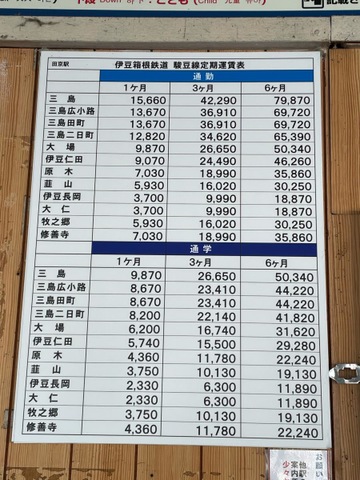 田京駅 伊豆箱根鉄道 駿豆線定期運賃表
通勤
1ケ月 3ヶ月 6ヶ月
三島 15,660 42,290 79,870
三島広小路 13,670 36,910 69,720
三島田町 13,670 36,910 69,720
三島二日町 12,820 34,620 65,390
大場 9,870 26,650 50,340
伊豆仁田 9,070 24,490 46,260
原木 7,030 18,990 35,860
韮山 5,930 16,020 30,250
伊豆長岡 3,700 9,990 18,870
大仁 3,700 9,990 18,870
牧之郷 5,930 16,020 30,250
修善寺 7,030 18,990 35,860
通学
1ケ月 3ヶ月 6ヶ月
三島 9,870 26,650 50,340
三島広小路 8,670 23,410 44,220
三島田町 8,670 23,410 44,220
三島二日町 8,200 22,140 41,820
大場 6,200 16,740 31,620
伊豆仁田 5,740 15,500 29,280
原木 4,360 11,780 22,240
韮山 3,750 10,130 19,130
伊豆長岡 2,330 6,300 11,890
大仁 2,330 6,300 11,890
牧之郷 3,750 10,130 19,130
修善寺 4,360 11,780 22,240
お願い